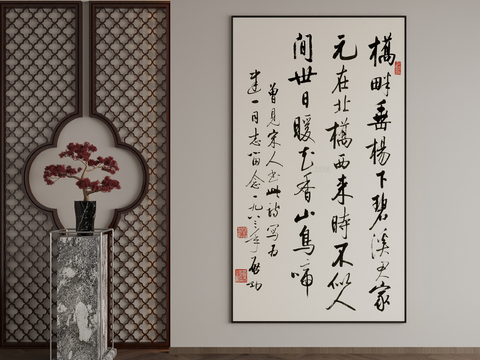 橋畔垂楊下碧溪君家
元在北橋西来時不似人
间世日暖花香山鸟啼
曾見宋人书此诗寫为
建一同志留念一九八三年启功